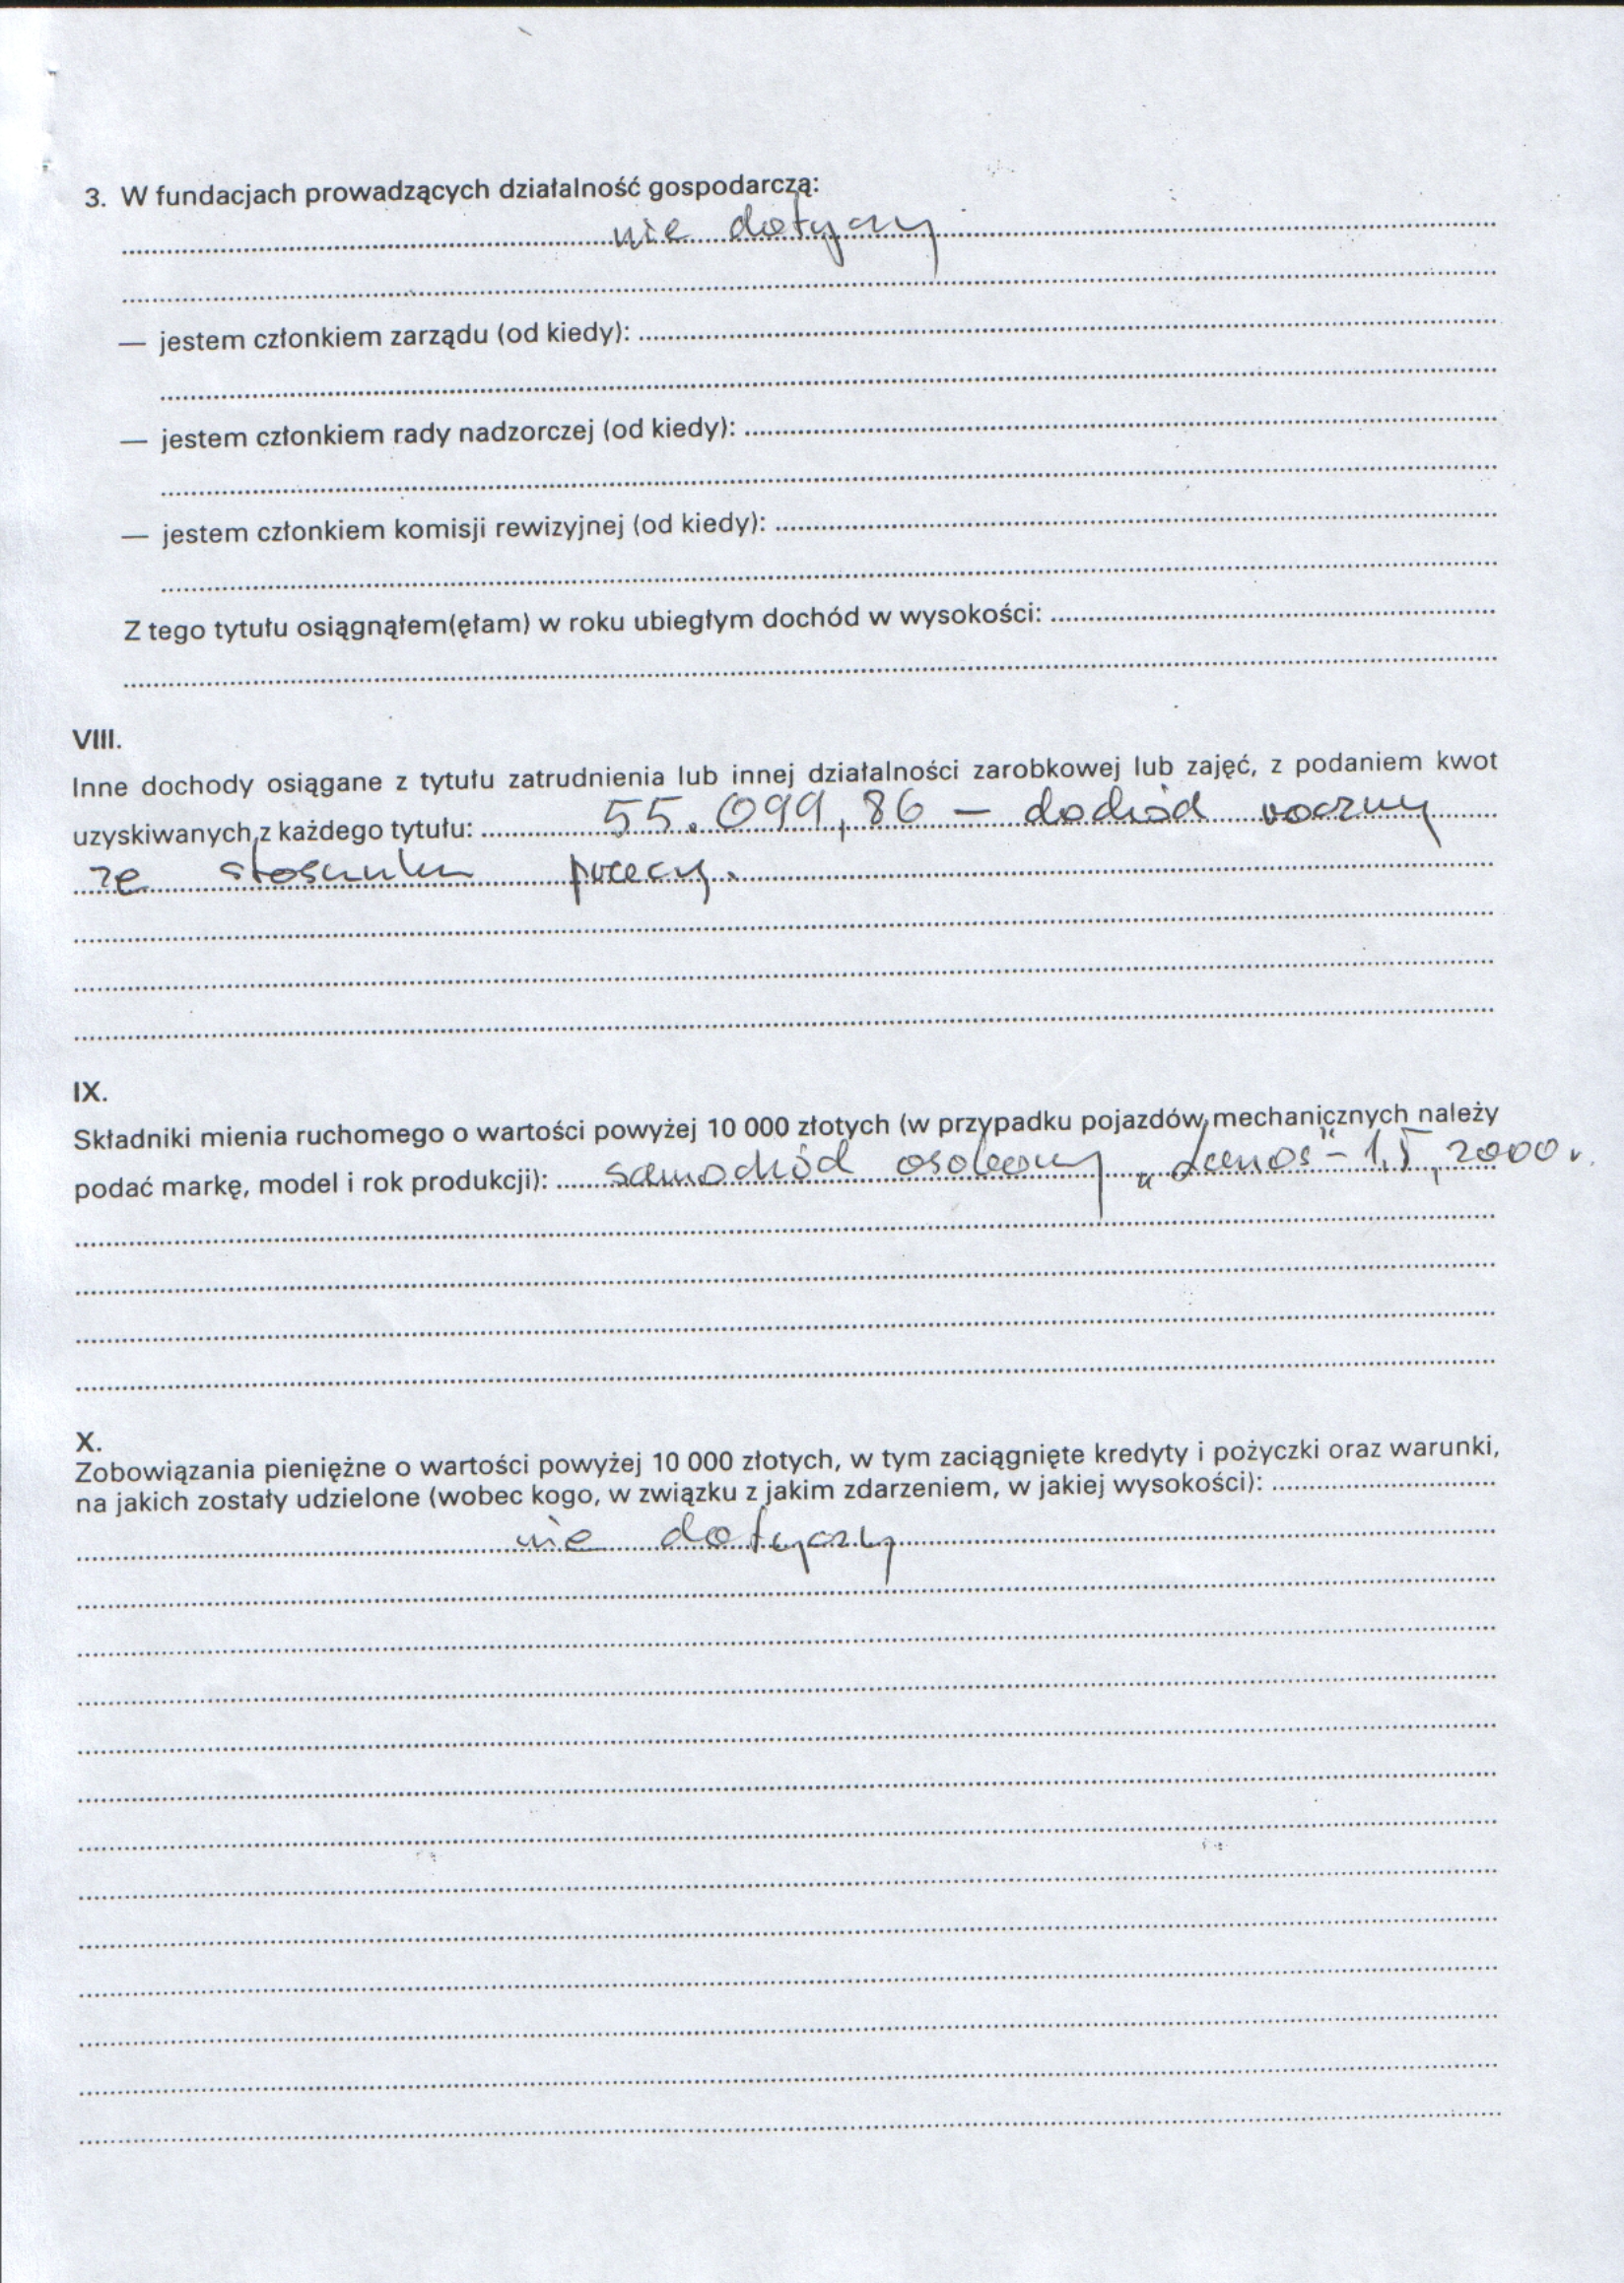 3. W fundacjach prowadzących działalność gospodarczą:
nie dotyczy
— jestem członkiem zarządu (od kiedy):
— jestem członkiem rady nadzorczej (od kiedy):
— jestem członkiem komisji rewizyjnej (od kiedy):
Z tego tytułu osiągnąłem(ęłam) w roku ubiegłym dochód w wysokości:
VIII.
Inne dochody osiągane z tytułu zatrudnienia lub innej działalności zarobkowej lub zajęć, z podaniem kwot
uzyskiwanych z każdego tytułu: 55.099,86 – dochód roczny
ze stosunku pracy.
IX.
Składniki mienia ruchomego o wartości powyżej 10 000 złotych (w przypadku pojazdów mechanicznych należy
podać markę, model i rok produkcji): samochód osobowy „Lanos" – 1,5, 2000 r.
X.
Zobowiązania pieniężne o wartości powyżej 10 000 złotych, w tym zaciągnięte kredyty i pożyczki oraz warunki,
na jakich zostały udzielone (wobec kogo, w związku z jakim zdarzeniem, w jakiej wysokości):
nie dotyczy